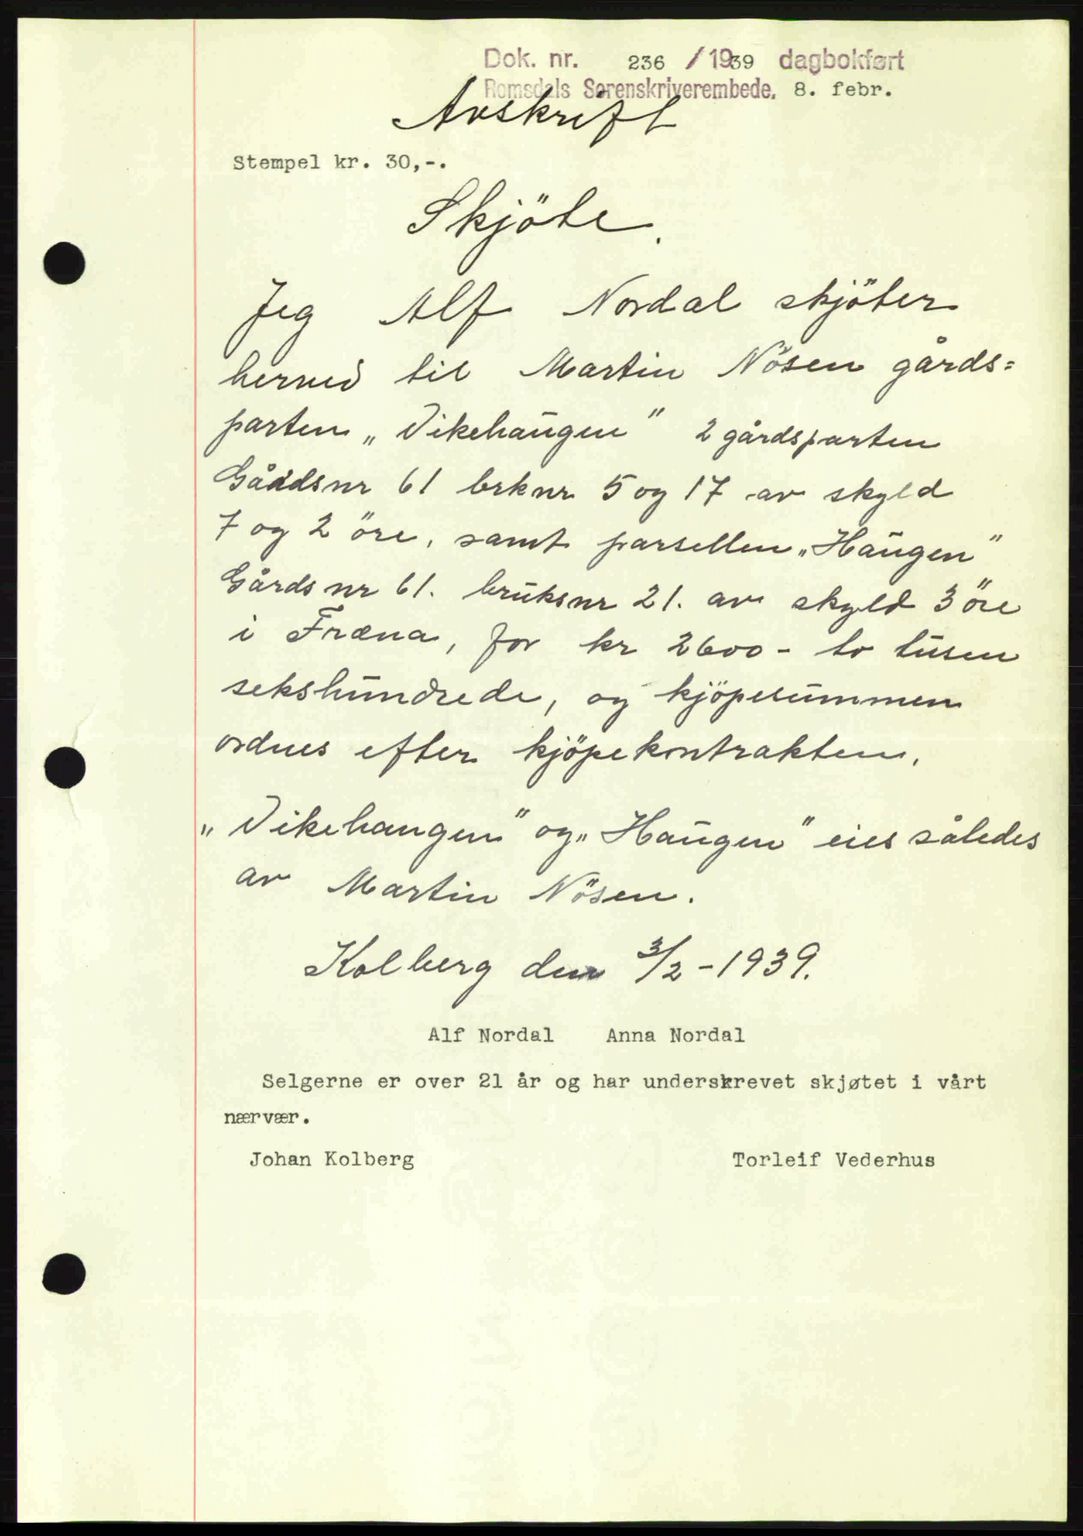 Dok. nr. 236 / 1939 dagbokført
Romsdals Sorenskriverembede. 8. febr.
Avskrift
Stempel kr. 30,-.
Skjöte.
Jeg Alf Nordal skjöter
herved til Martin Nösen gårds=
parten „Vikehaugen" 2 gårdsparten
Gårdsnr 61 brknr 5 og 17 av skyld
7 og 2 öre, samt parsellen „Haugen"
Gårdsnr 61. bruksnr 21. av skyld 3 öre
i Fræna, for kr 2600 - to tusen
sekshundrede, og kjöpesummen
ordnes efter kjöpekontrakten.
„Vikehaugen" og „Haugen" eies således
av Martin Nösen.
Kolberg den 3/2 - 1939.
Alf Nordal Anna Nordal
Selgerne er over 21 år og har underskrevet skjøtet i vårt
nærvær.
Johan Kolberg Torleif Vederhus